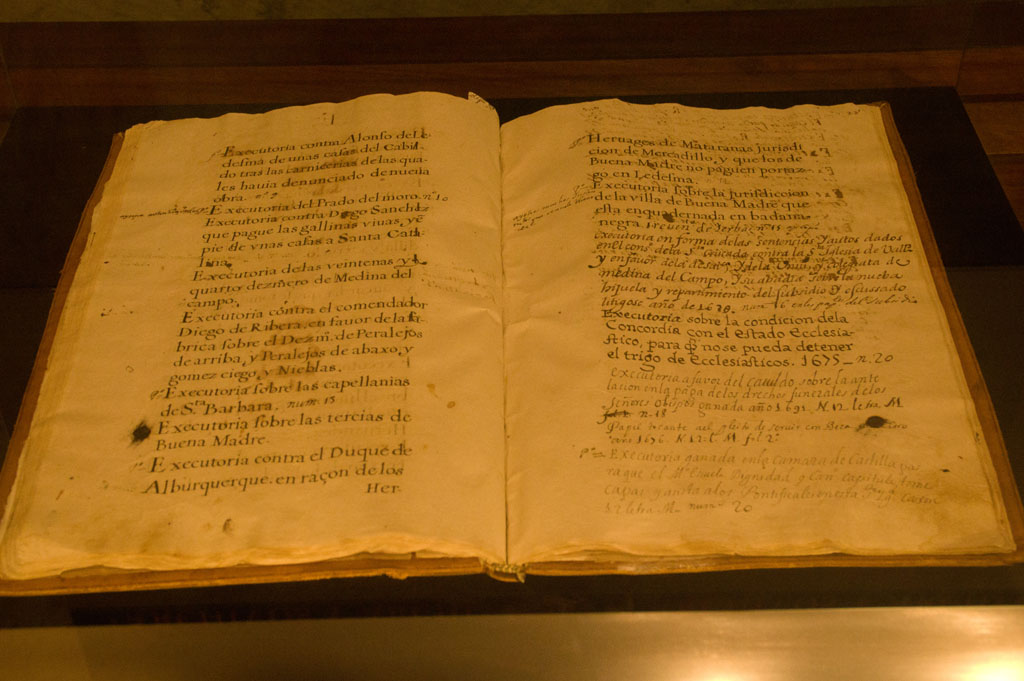 Executoria contra Alonso de Le
desma de unas casas del Cabil-
do tras las carnicerias de las qua-
les hauia denunciado de nueua
obra.
Executoria del Prado del moro. nº 10
Executoria contra Diego Sanchez
que pague las gallinas viuas, y ē
pie de vnas casas a Santa Cata
lina.
Executoria de las veintenas y
quarto dezmero de Medina del
campo.
Executoria contra el comendador
Diego de Ribera, en fauor de la fa-
brica sobre el Dezm. de Peralejos
de arriba, y Peralejos de abaxo, y
gomez ciego, y Nieblas.
Executoria sobre las capellanias
de Sta Barbara. num. 13
Executoria sobre las tercias de
Buena Madre.
Executoria contra el Duque de
Alburquerque, en raçon de los
Her-
Heruages de Mataranas jurisdi
cion de Mercadillo, y que los de
Buena Madre no paguen portaz-
go en Ledesma.
Executoria sobre la jurisdiccion
de la villa de Buena Madre que
esta enquadernada en badana
negra.
executoria en forma de las sentencias y autos dados
en el cons. de la S. cruzada contra la S. Iglesia de Valld
medina del Campo,
y repartimiento del subsidio y escussado
litigose año de 1638.
Executoria sobre la condicion de la
Concordia con el Estado Ecclesia-
stico, para q no se pueda detener
el trigo de Ecclesiasticos. 1675_ n. 20
Executoria a favor del cauildo, sobre la ante
lacion en la paga de los drechos funerales de los
Señores Obispos ganada año 1691. N. 12. letra. M
n. 18
Papel tocante al pleito de seruir con Beca
año 1676. N. 12. L. M. f. 2º
Executoria ganada en la Camara de Castilla pa
ra que el Mº Escuela Dignidad y can. capitule, tome
capas y
12 letra M. num. 20